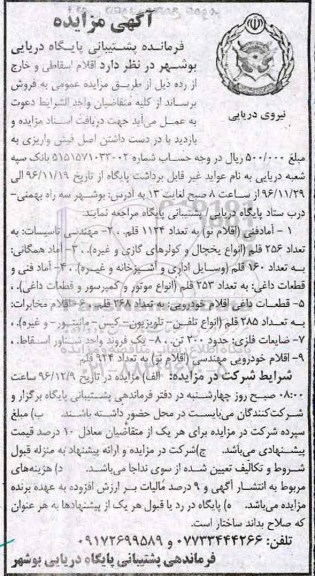 آگهی مزایده
نیروی دریایی
فرمانده پشتیبانی پایگاه دریایی
بوشهر در نظر دارد اقلام اسقاطی و خارج
از رده ذیل از طریق مزایده عمومی به فروش
برساند از کلیه متقاضیان واجد الشرایط دعوت
به عمل می‌آید جهت دریافت اسناد مزایده و
بازدید با در دست داشتن اصل فیش واریزی به
مبلغ ۵۰۰/۰۰۰ ریال در وجه حساب شماره ۵۱۵۱۵۷۱۰۳۳۰۰۲ بانک سپه
شعبه دریایی به نام عواید غیر قابل برداشت پایگاه از تاریخ ۹۶/۱۱/۱۹ الی
۹۶/۱۱/۲۹ از ساعت ۸ صبح لغایت ۱۳ به آدرس: بوشهر سه راه بهمنی-
درب ستاد پایگاه دریایی پشتیبانی پایگاه مراجعه نمایند.
۱- آمادفنی (اقلام نو) به تعداد ۱۱۲۴ قلم. ۲- مهندسی تاسیسات: به
تعداد ۲۵۶ قلم (انواع یخچال و کولرهای گازی و غیره). ۳- آماد همگانی:
به تعداد ۱۶۰ قلم (وسایل اداری و آشپزخانه و غیره). ۴- آماد فنی و
قطعات داغی: به تعداد ۲۵۳ قلم (انواع موتور و کمپرسور و قطعات داغی).
۵- قطعات داغی اقلام خودرویی: به تعداد ۲۶۸ قلم. ۶- اقلام مخابرات:
به تعداد ۲۸۵ قلم (انواع تلفن- تلویزیون- کیس- مانیتور- و غیره).
۷- ضایعات فلزی: حدود ۲۰۰ تن. ۸- یک فروند واحد شناور اسقاط.
۹- اقلام خودرویی مهندسی (اقلام نو) به تعداد ۹۲۴ قلم
شرایط شرکت در مزایده: الف) مزایده در تاریخ ۹۶/۱۲/۹ ساعت
۰۸:۰۰ صبح روز چهارشنبه در دفتر فرماندهی پشتیبانی پایگاه برگزار و
شرکت‌کنندگان می‌بایست در محل حضور داشته باشند. ب) مبلغ
سپرده شرکت در مزایده برای هر یک از متقاضیان معادل ۱۰ درصد قیمت
پیشنهادی می‌باشد. ج) شرکت در مزایده و ارائه پیشنهاد به منزله قبول
شروط و تکالیف تعیین شده از سوی نداجا می‌باشد. د) هزینه‌های
مربوط به انتشار آگهی و ۹ درصد مالیات بر ارزش افزوده به عهده برنده
مزایده می‌باشد. ه) پایگاه در رد یا قبول هر یک از پیشنهادها به هر عنوان
که صلاح بداند ساختار است.
تلفن: ۰۷۷۳۳۴۴۴۲۶۶ و ۰۹۱۷۲۶۹۹۵۸۹
فرماندهی پشتیبانی پایگاه دریایی بوشهر